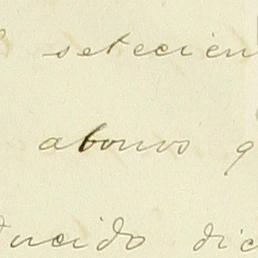 setecien
abonos q
ducido dic